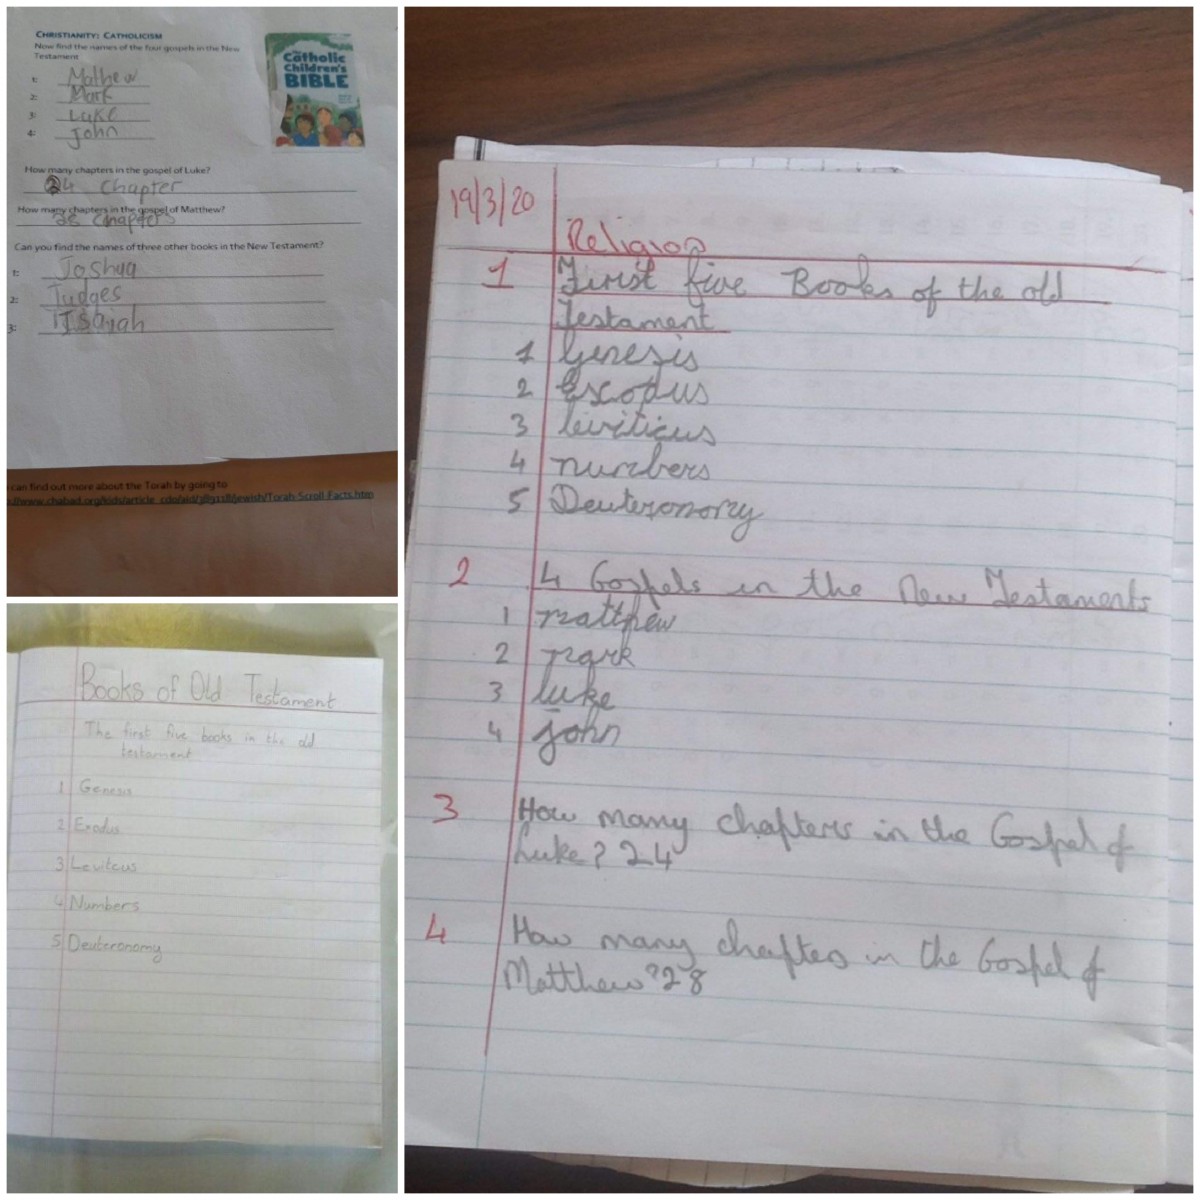 CHRISTIANITY: CATHOLICISM
Now find the names of the four gospels in the New
Testament
1: Mathew
2: Mark
3: Luke
4: John
Catholic
Children's
BIBLE
How many chapters in the gospel of Luke?
24 Chapter
How many chapters in the gospel of Matthew?
28 Chapters
Can you find the names of three other books in the New Testament?
1: Joshua
2: Judges
3: Isaiah
can find out more about the Torah by going to
Books of Old Testament
The first five books in the old
testament
1 Genesis
2 Exodus
3 Leviteus
4 Numbers
5 Deuteronomy
19/3/20
Religion
1 First five Books of the old
Testament
1 Genesis
2 Escopus
3 leviticus
4 numbers
5 Deuteronomy
2 4 Gospels in the New Testaments
1 matthew
2 mark
3 luke
4 john
3 How many chapters in the Gospel of
Luke? 24
4 How many chapters in the Gospel of
Matthew? 28